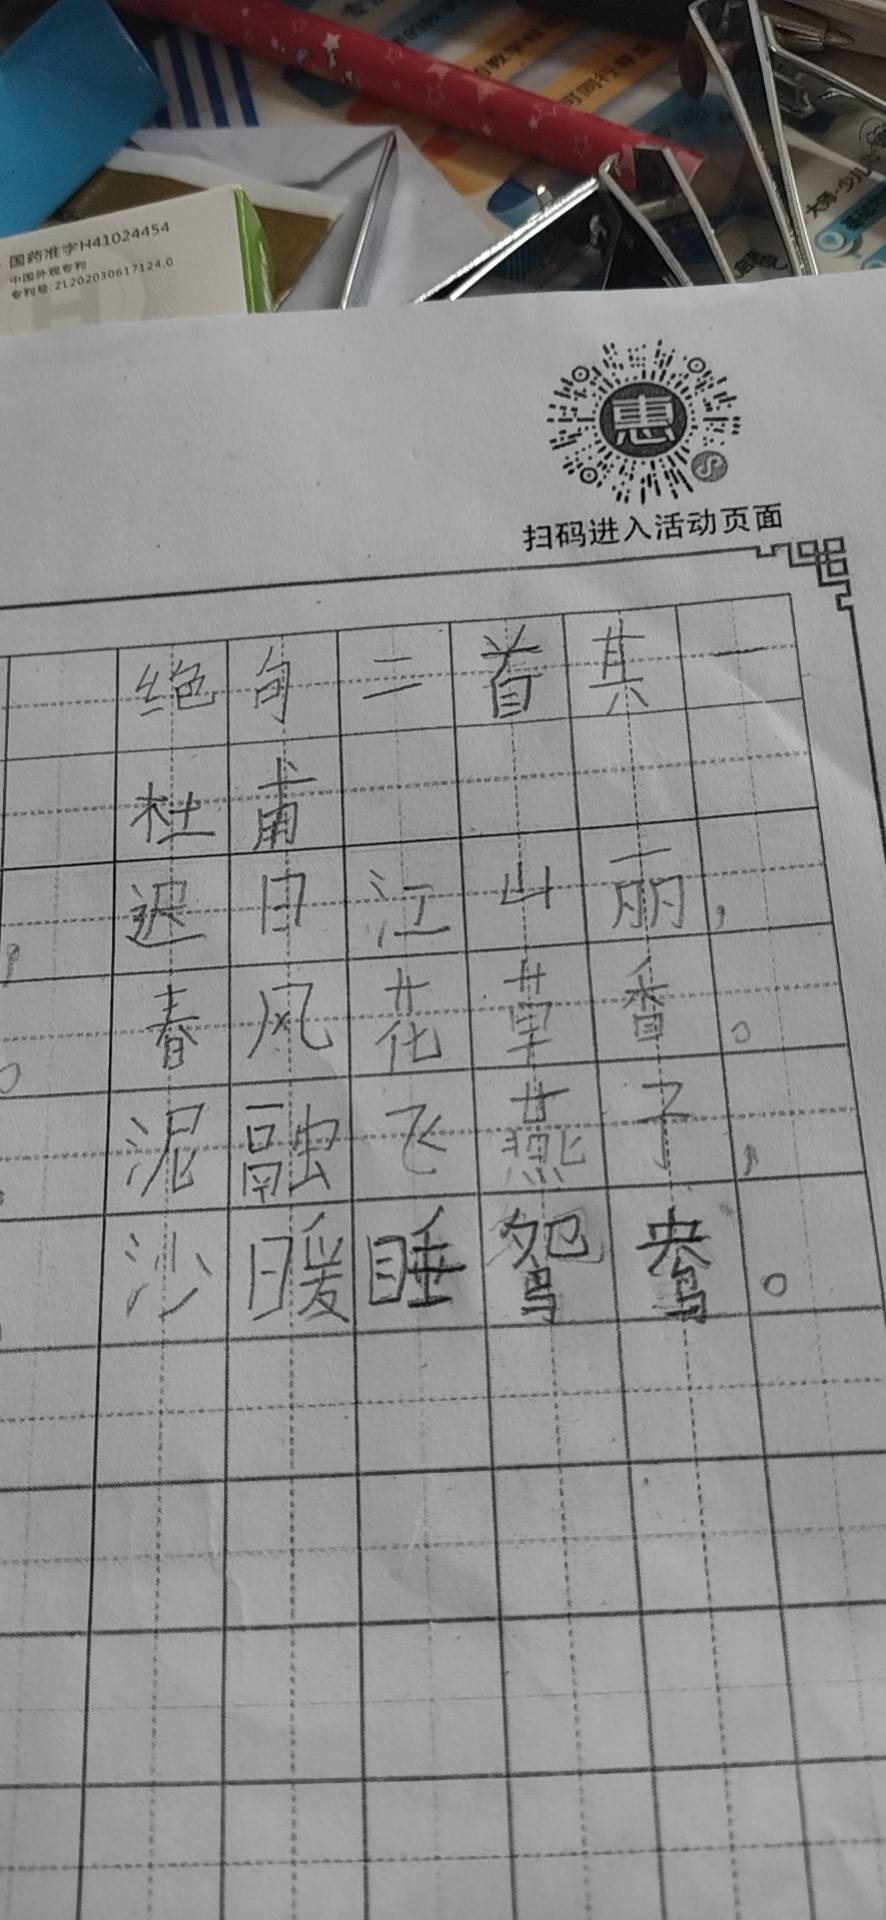 国药准字H41024454
中国外观专利
专利号:ZL202030617124.0
可同行
大师·少儿
惠
扫码进入活动页面
绝句二首其一
杜甫
迟日江山丽，
春风花草香。
泥融飞燕子，
沙暖睡鸳鸯。